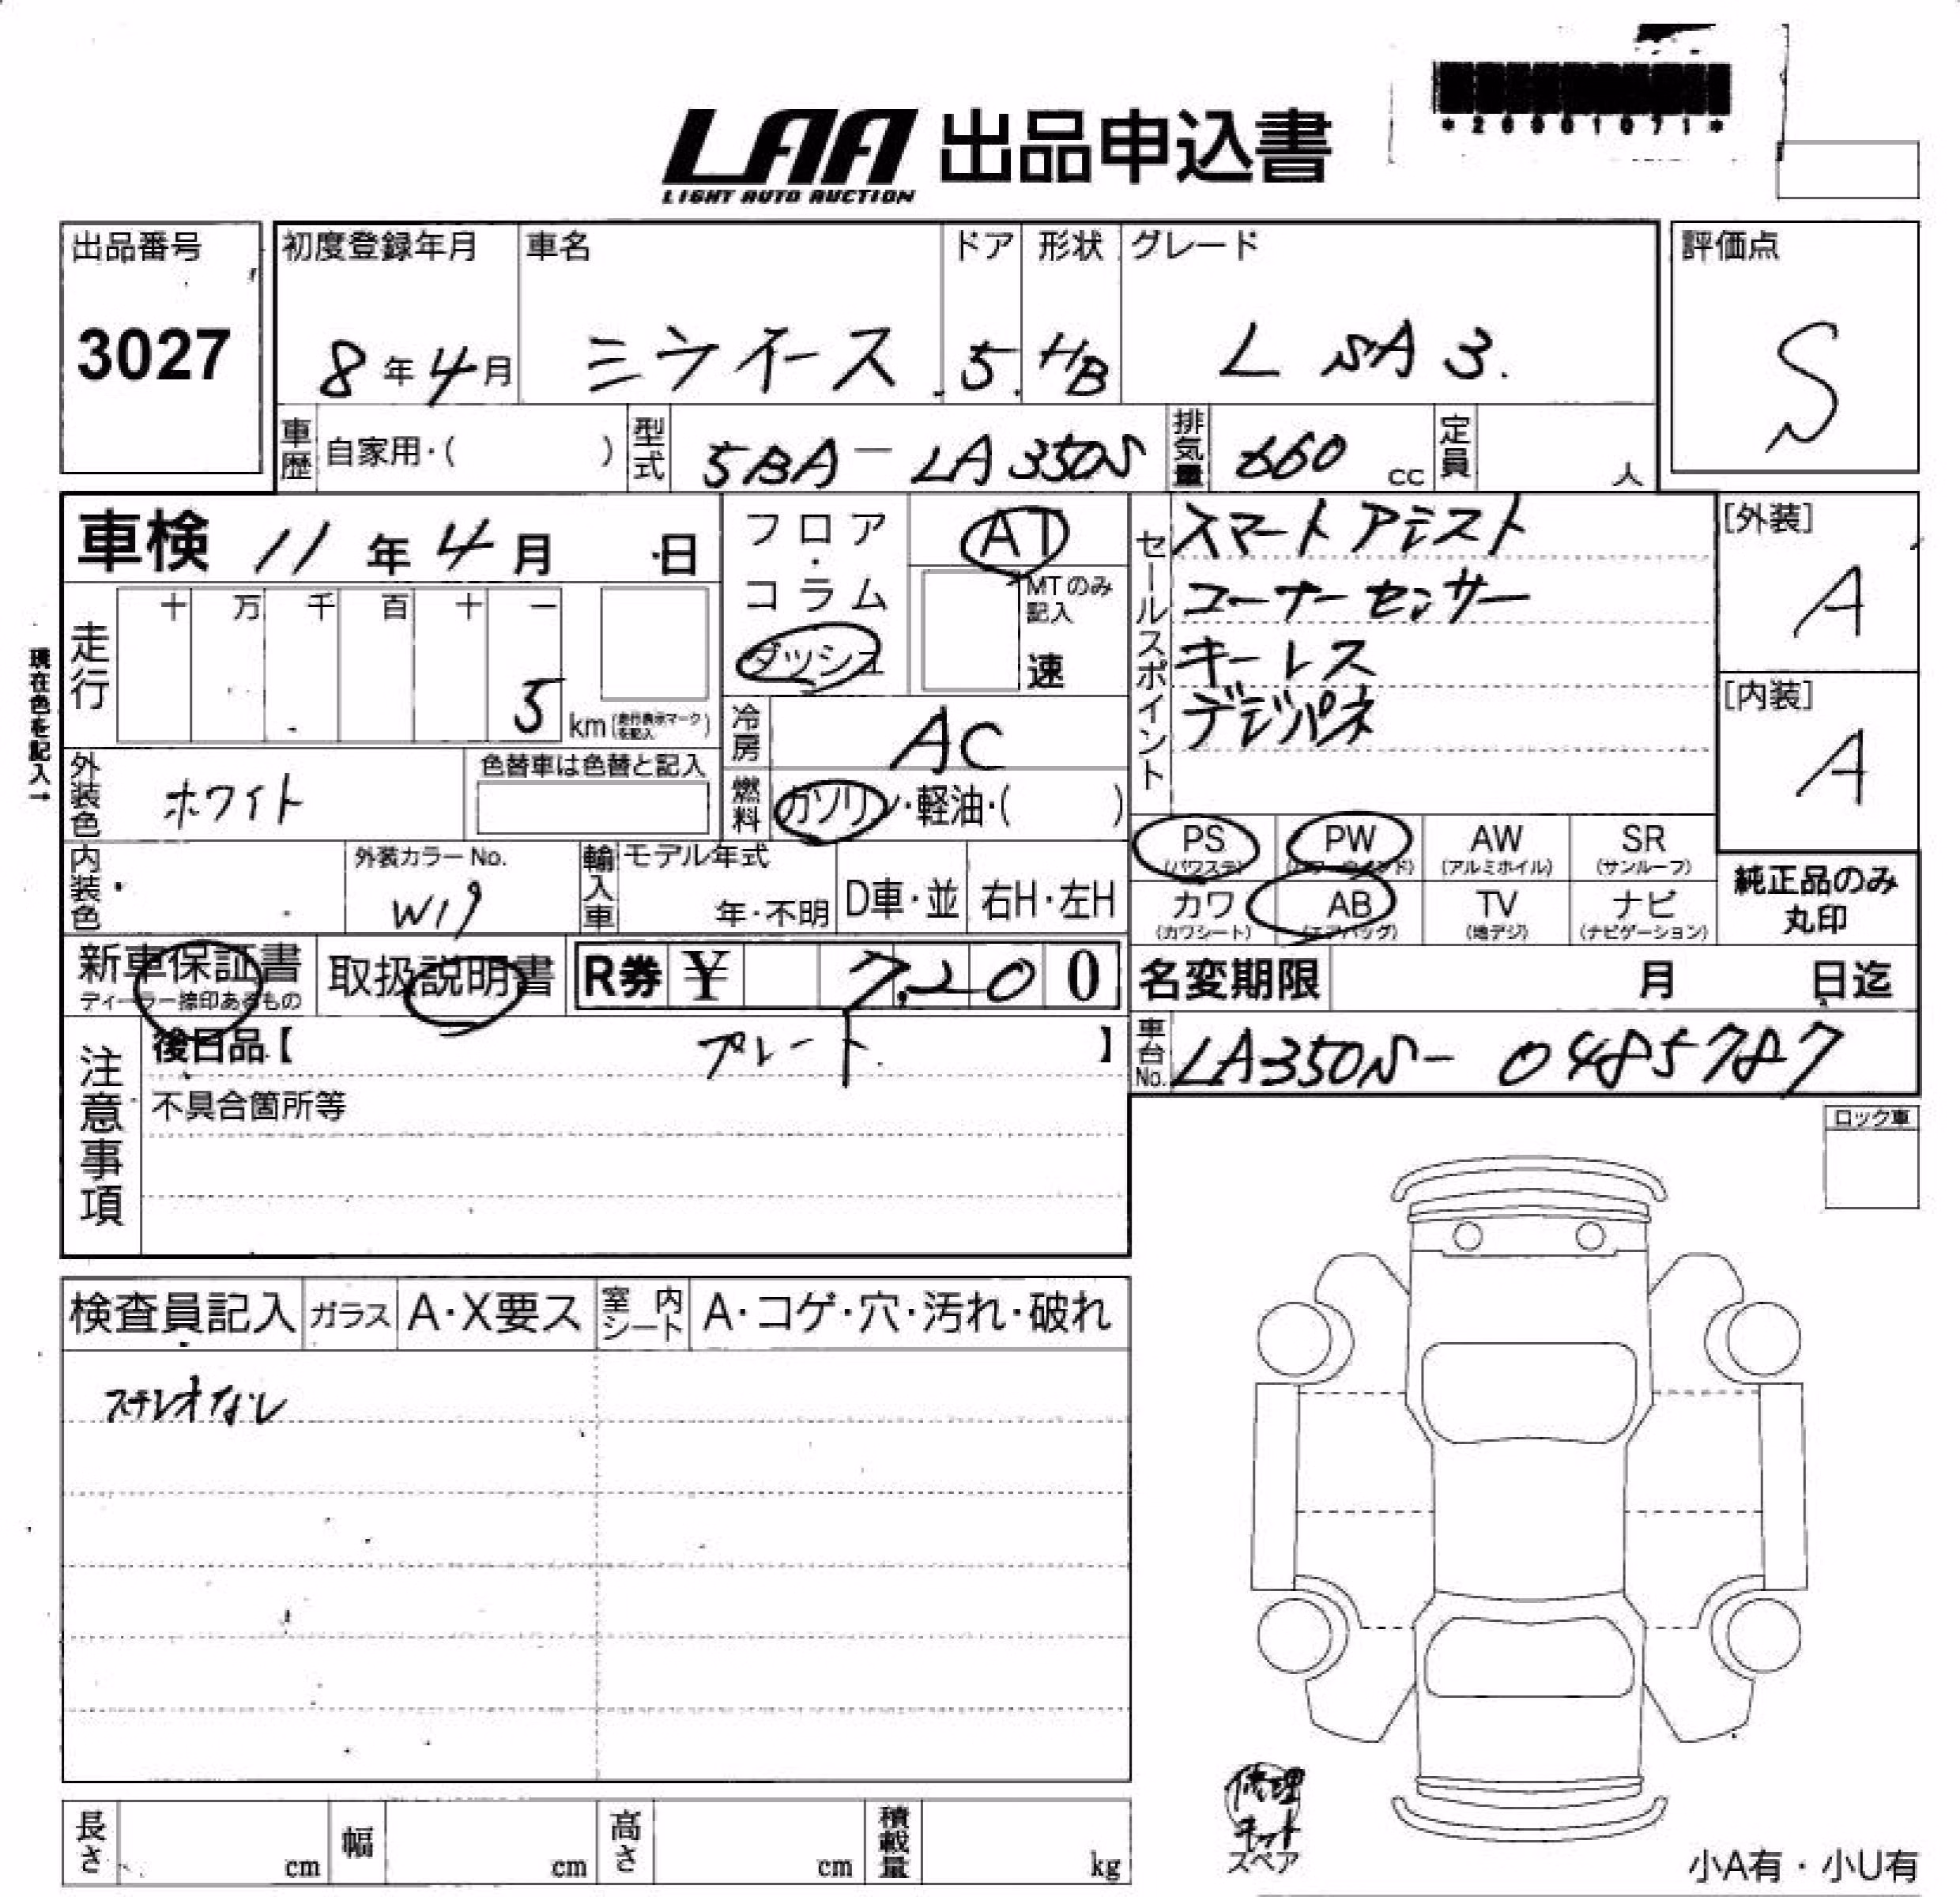 *26001071*
LAA 出品申込書
LIGHT AUTO AUCTION
出品番号 3027
初度登録年月 8年4月
車名 ミライース
ドア 5
形状 HB
グレード L SA3.
評価点 S
車歴 自家用・( )
型式 5BA-LA350S
排気量 660 cc
定員 人
車検 11年4月 日
フロア・コラム ダッシュ
AT
MTのみ記入 速
セールスポイント
スマートアシスト
コーナーセンサー
キーレス
デジパネ
[外装] A
[内装] A
現在色を記入→
走行 十 万 千 百 十 一
5 km (走行表示マークを記入)
冷房 AC
外装色 ホワイト
色替車は色替と記入
燃料 ガソリン・軽油・( )
PS (パワステ)
PW (パワーウインド)
AW (アルミホイル)
SR (サンルーフ)
カワ (カワシート)
AB (エアバッグ)
TV (地デジ)
ナビ (ナビゲーション)
純正品のみ丸印
内装色
外装カラーNo. W19
輸入車 モデル年式 年・不明
D車・並
右H・左H
新車保証書
ディーラー捺印あるもの
取扱説明書
R券 ¥ 7,200
名変期限 月 日迄
注意事項
後日品【 プレート 】
不具合箇所等
車台No. LA350S-0485787
ロック車
検査員記入 ガラス A・X要ス 室内シート A・コゲ・穴・汚れ・破れ
ステレオなし
修理
キット
スペア
長さ cm 幅 cm 高さ cm 積載量 kg
小A有・小U有